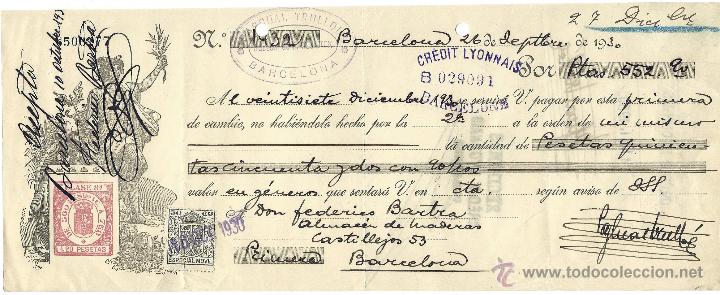 27 Dicbre
Nº 1132 Barcelona 26 de Septbre. de 1930
BARCELONA
CREDIT LYONNAIS
B 029091
BARCELONE
Por Ptas 552,90
Al veintisiete Diciembre 1930 se servirá V. pagar por esta primera
de cambio, no habiéndolo hecho por la 2ª a la orden de mi mismo
la cantidad de Pesetas quinien
tas cincuenta y dos con 90/00
valor en géneros que sentará V. en cta. según aviso de
A Don Federico Bartra
Almacén de Maderas
Castillejos 53
Primera Barcelona
Acepto
Barcelona 10 octubre 1930
CLASE 8ª
1,20 PESETAS
ESPECIAL MOVIL
1930
www.todocoleccion.net